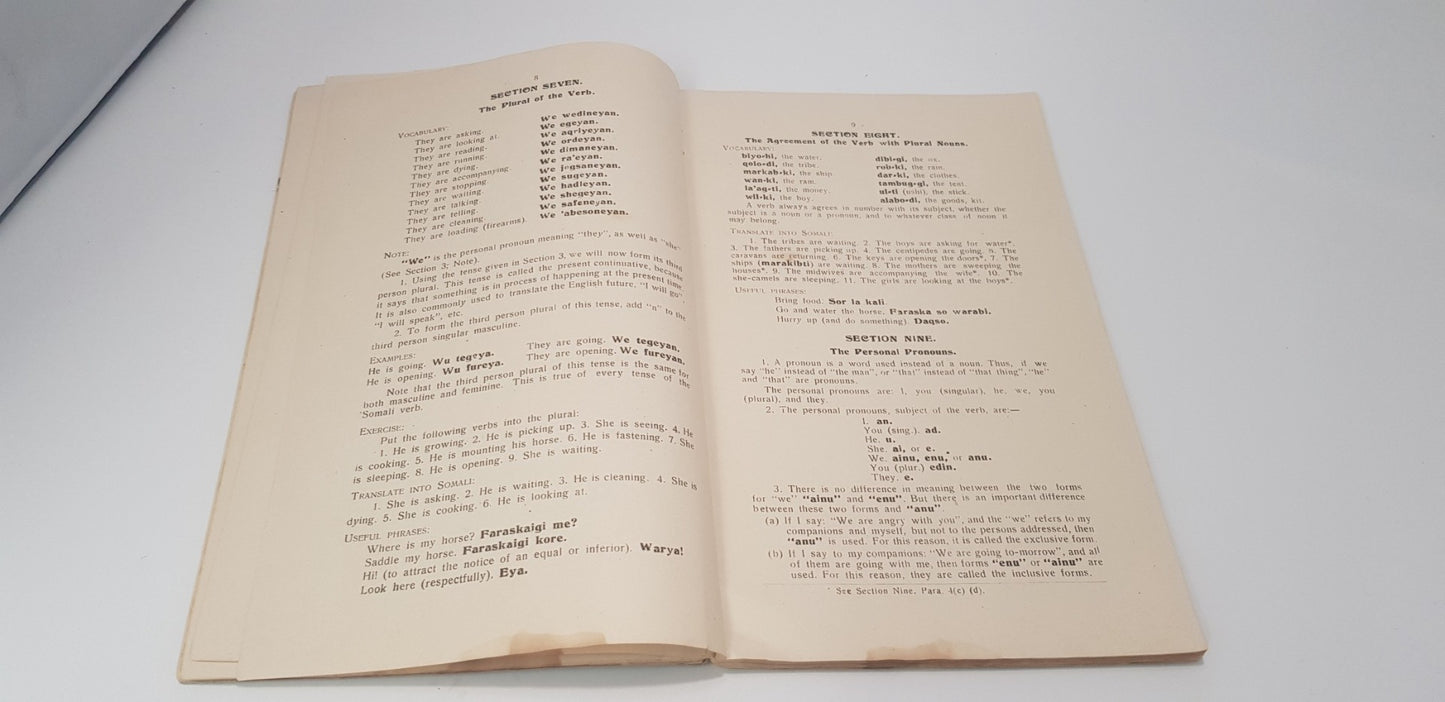 8
SECTION SEVEN.
The Plural of the Verb.
VOCABULARY:
They are asking. We wedineyan.
They are looking at. We egeyan.
They are reading. We aqriyeyan.
They are running. We ordeyan.
They are dying. We dimaneyan.
They are accompanying We ra'eyan.
They are stopping We jogsaneyan.
They are waiting. We sugeyan.
They are talking. We hadleyan.
They are telling. We shegeyan.
They are cleaning We safeneyan.
They are loading (firearms). We 'abesoneyan.
NOTE:
"We" is the personal pronoun meaning "they", as well as "she"
(See Section 3; Note).
1. Using the tense given in Section 3, we will now form its third
person plural. This tense is called the present continuative, because
it says that something is in process of happening at the present time
It is also commonly used to translate the English future, "I will go"
"I will speak", etc.
2. To form the third person plural of this tense, add "n" to the
third person singular masculine.
EXAMPLES:
He is going. Wu tegeya. They are going. We tegeyan.
He is opening. Wu fureya. They are opening. We fureyan.
Note that the third person plural of this tense is the same for
both masculine and feminine. This is true of every tense of the
Somali verb.
EXERCISE:
Put the following verbs into the plural:
1. He is growing. 2. He is picking up. 3. She is seeing. 4. He
is cooking. 5. He is mounting his horse. 6. He is fastening. 7. She
is sleeping. 8. He is opening. 9. She is waiting.
TRANSLATE INTO SOMALI:
1. She is asking. 2. He is waiting. 3. He is cleaning. 4. She is
dying. 5. She is cooking. 6. He is looking at.
USEFUL PHRASES:
Where is my horse? Faraskaigi me?
Saddle my horse. Faraskaigi kore.
Hi! (to attract the notice of an equal or inferior). Warya!
Look here (respectfully). Eya.
9
SECTION EIGHT.
The Agreement of the Verb with Plural Nouns.
VOCABULARY:
biyo-hi, the water. dibi-gi, the ox.
qolo-di, the tribe. rob-ki, the rain.
markab-ki, the ship. dar-ki, the clothes.
wan-ki, the ram. tambug-gi, the tent.
la'ag-ti, the money. ul-ti (ushi), the stick.
wil-ki, the boy. alabo-di, the goods, kit.
A verb always agrees in number with its subject, whether the
subject is a noun or a pronoun, and to whatever class of noun it
may belong.
TRANSLATE INTO SOMALI:
1. The tribes are waiting. 2. The boys are asking for water*.
3. The fathers are picking up. 4. The centipedes are going. 5. The
caravans are returning. 6. The keys are opening the doors*. 7. The
ships (marakibti) are waiting. 8. The mothers are sweeping the
houses*. 9. The midwives are accompanying the wife*. 10. The
she-camels are sleeping. 11. The girls are looking at the boys*.
USEFUL PHRASES:
Bring food. Sor la kali.
Go and water the horse. Faraska so warabi.
Hurry up (and do something). Daqso.
SECTION NINE.
The Personal Pronouns.
1. A pronoun is a word used instead of a noun. Thus, if we
say "he" instead of "the man", or "that" instead of "that thing", "he"
and "that" are pronouns.
The personal pronouns are: I, you (singular), he, we, you
(plural), and they.
2. The personal pronouns, subject of the verb, are:—
I. an.
You (sing.). ad.
He. u.
She. ai, or e.
We. ainu, enu, or anu.
You (plur.) edin.
They. e.
3. There is no difference in meaning between the two forms
for "we" "ainu" and "enu". But there is an important difference
between these two forms and "anu".
(a) If I say: "We are angry with you", and the "we" refers to my
companions and myself, but not to the persons addressed, then
"anu" is used. For this reason, it is called the exclusive form.
(b) If I say to my companions: "We are going to-morrow", and all
of them are going with me, then forms "enu" or "ainu" are
used. For this reason, they are called the inclusive forms.
* See Section Nine. Para. 4(c) (d).